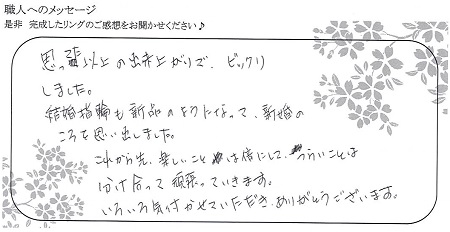 職人へのメッセージ
是非 完成したリングのご感想をお聞かせください♪
思った以上の出来上がりで、ビックリ
しました。
結婚指輪も新品のようになって、新婚の
ころを思い出しました。
これから先、楽しいことは倍にして、つらいことは
分け合って頑張っていきます。
いろいろ気付かせていただき、ありがとうございます。